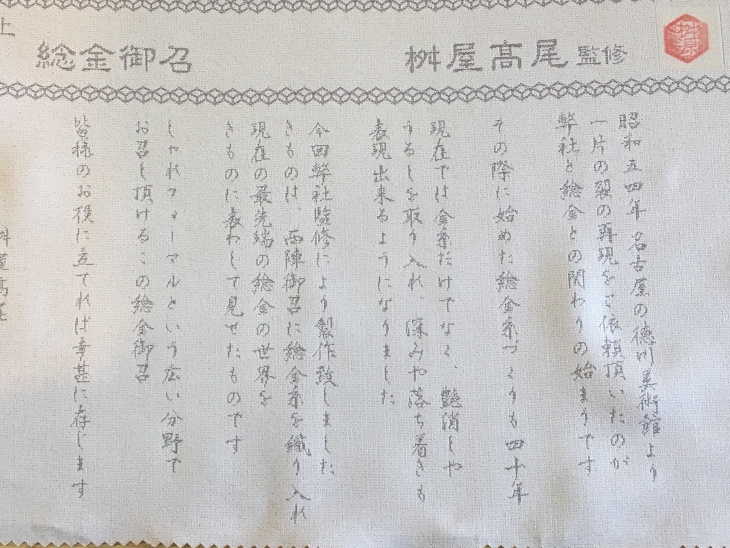 桝屋高尾監修
総金御召
上
昭和五四年 名古屋の徳川美術館より
一片の裂の再現をご依頼頂いたのが
弊社と総金との関わりの始まりです
その際に始めた総金糸づくりも四十年
現在では金糸だけでなく、艶消しや
うるしを取り入れ、深みや落ち着きも
表現出来るようになりました
今回弊社監修により製作致しました
きものは、西陣御召に総金糸を織り入れ
現在の最先端の総金の世界を
きものに表わして見せたものです
しゃれフォーマルという広い分野で
お召し頂けるこの総金御召
皆様のお役に立てれば幸甚に存じます
桝屋高尾